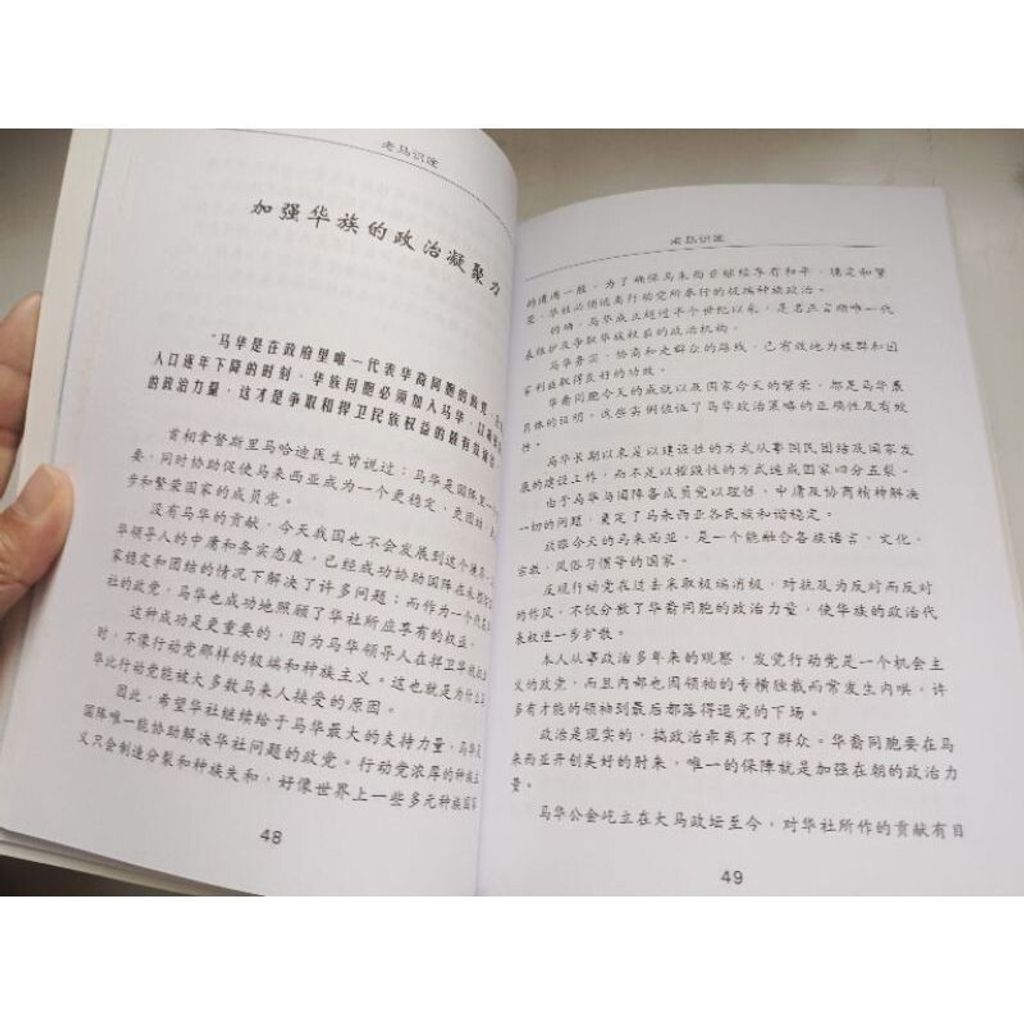 老马识途
加强华族的政治凝聚力
"马华是在政府里唯一代表华裔同胞的政党,在
人口逐年下降的时刻,华族同胞必须加入马华,以
的政治力量,这才是争取和捍卫民族权益的最有效
首相拿督斯里马哈迪医生曾说过:马华是国阵里一个
要,同时协助促使马来西亚成为一个更稳定、更团结、
步和繁荣国家的成员党。
没有马华的贡献,今天我国也不会发展到这个
华领导人的中庸和务实态度,已经成功协助国阵在
家稳定和团结的情况下解决了许多问题;而作为一个代表
社的政党,马华也成功地照顾了华社所应享有的权益。
这种成功是更重要的,因为马华领导人在捍卫华族权
时,不像行动党那样的极端和种族主义。这也就是为什么
华比行动党能被大多数马来人接受的原因。
因此,希望华社继续给于马华最大的支持力量,马华是
国阵唯一能协助解决华社问题的政党。行动党浓厚的种族主
义只会制造分裂和种族失和,好像世界上一些多元种族国家
48
老马识途
的遭遇一般。为了确保马来西亚继续享有和平、稳定和繁
荣,华社必须远离行动党所奉行的极端种族政治。
的确,马华成立超过半个世纪以来,是名正言顺唯一代
表维护及争取华族权益的政治机构。
马华务实、协商和走群众的路线,已有效地为族群和国
家利益取得良好的功效。
华裔同胞今天的成就以及国家今天的繁荣,都是马华最
具体的证明。这些实例佐证了马华政治策略的正确性及有效
性。
马华长期以来是以建设性的方式从事国民团结及国家发
展的建设工作,而不是以摧毁性的方式造成国家四分五裂。
由于马华与国阵各成员党以理性、中庸及协商精神解决
一切的问题,奠定了马来西亚各民族和谐稳定。
放眼今天的马来西亚,是一个能融合各族语言、文化、
宗教、风俗习惯等的国家。
反观行动党在过去采取极端消极,对抗及为反对而反对
的作风,不仅分散了华裔同胞的政治力量,使华族的政治代
表权进一步扩散。
本人从事政治多年来的观察,发觉行动党是一个机会主
义的政党,而且内部也因领袖的专横独裁而常发生内哄,许
多有才能的领袖到最后都落得退党的下场。
政治是现实的,搞政治乖离不了群众。华裔同胞要在马
来西亚开创美好的时来,唯一的保障就是加强在朝的政治力
量。
马华公会屹立在大马政坛至今,对华社所作的贡献有目
49